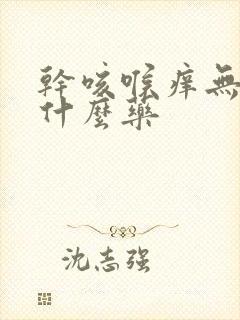 幹咳喉痒無
什麼藥
沈志强